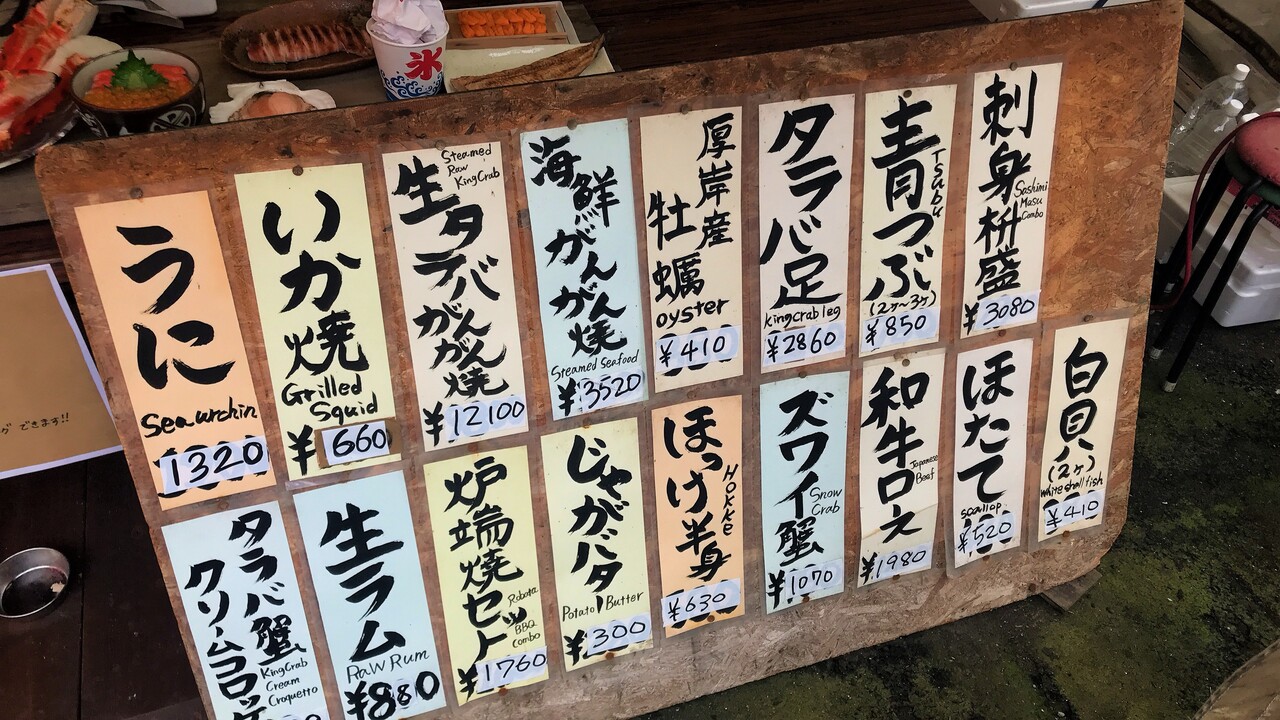 氷
刺身枡盛
Sashimi
Masu
Combo
¥3080
青つぶ
Tsubu
(2ヶ〜3ヶ)
¥850
タラバ足
kingcrab leg
¥2860
厚岸産
牡蠣
oyster
¥410
海鮮がんがん焼
Steamed Seafood
¥3520
生タラバがんがん焼
Steamed
Raw
KingCrab
¥12100
いか焼
Grilled
Squid
¥660
うに
Sea urchin
1320
白貝
(2ヶ)
white shell fish
¥410
ほたて
scallop
¥520
和牛ロース
Japanese
Beef
¥1980
ズワイ蟹
Snow
Crab
¥1070
ほっけ半身
Hokke
¥630
じゃがバター
Potato Butter
¥300
炉端焼セット
Robata
BBQ
combo
¥1760
生ラム
Raw Rum
¥880
タラバ蟹
クリームコロッケ
KingCrab
Cream
Croquetto
できます!!